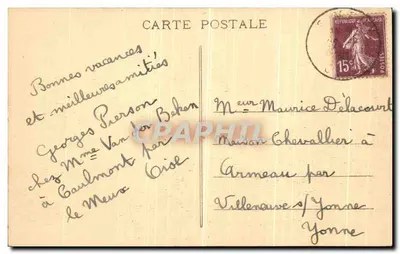 CARTE POSTALE
REPUBLIQUE FRANCAISE
15c
POSTES
Bonnes vacances
et meilleures amitiés
Georges Pierson
chez Mme Van der
à Caulmont par
le Meux Oise
Meur Maurice Délacourt
Maison Chevallier à
Armeau par
Villeneuve s/ Yonne
Yonne
CPAPHIL